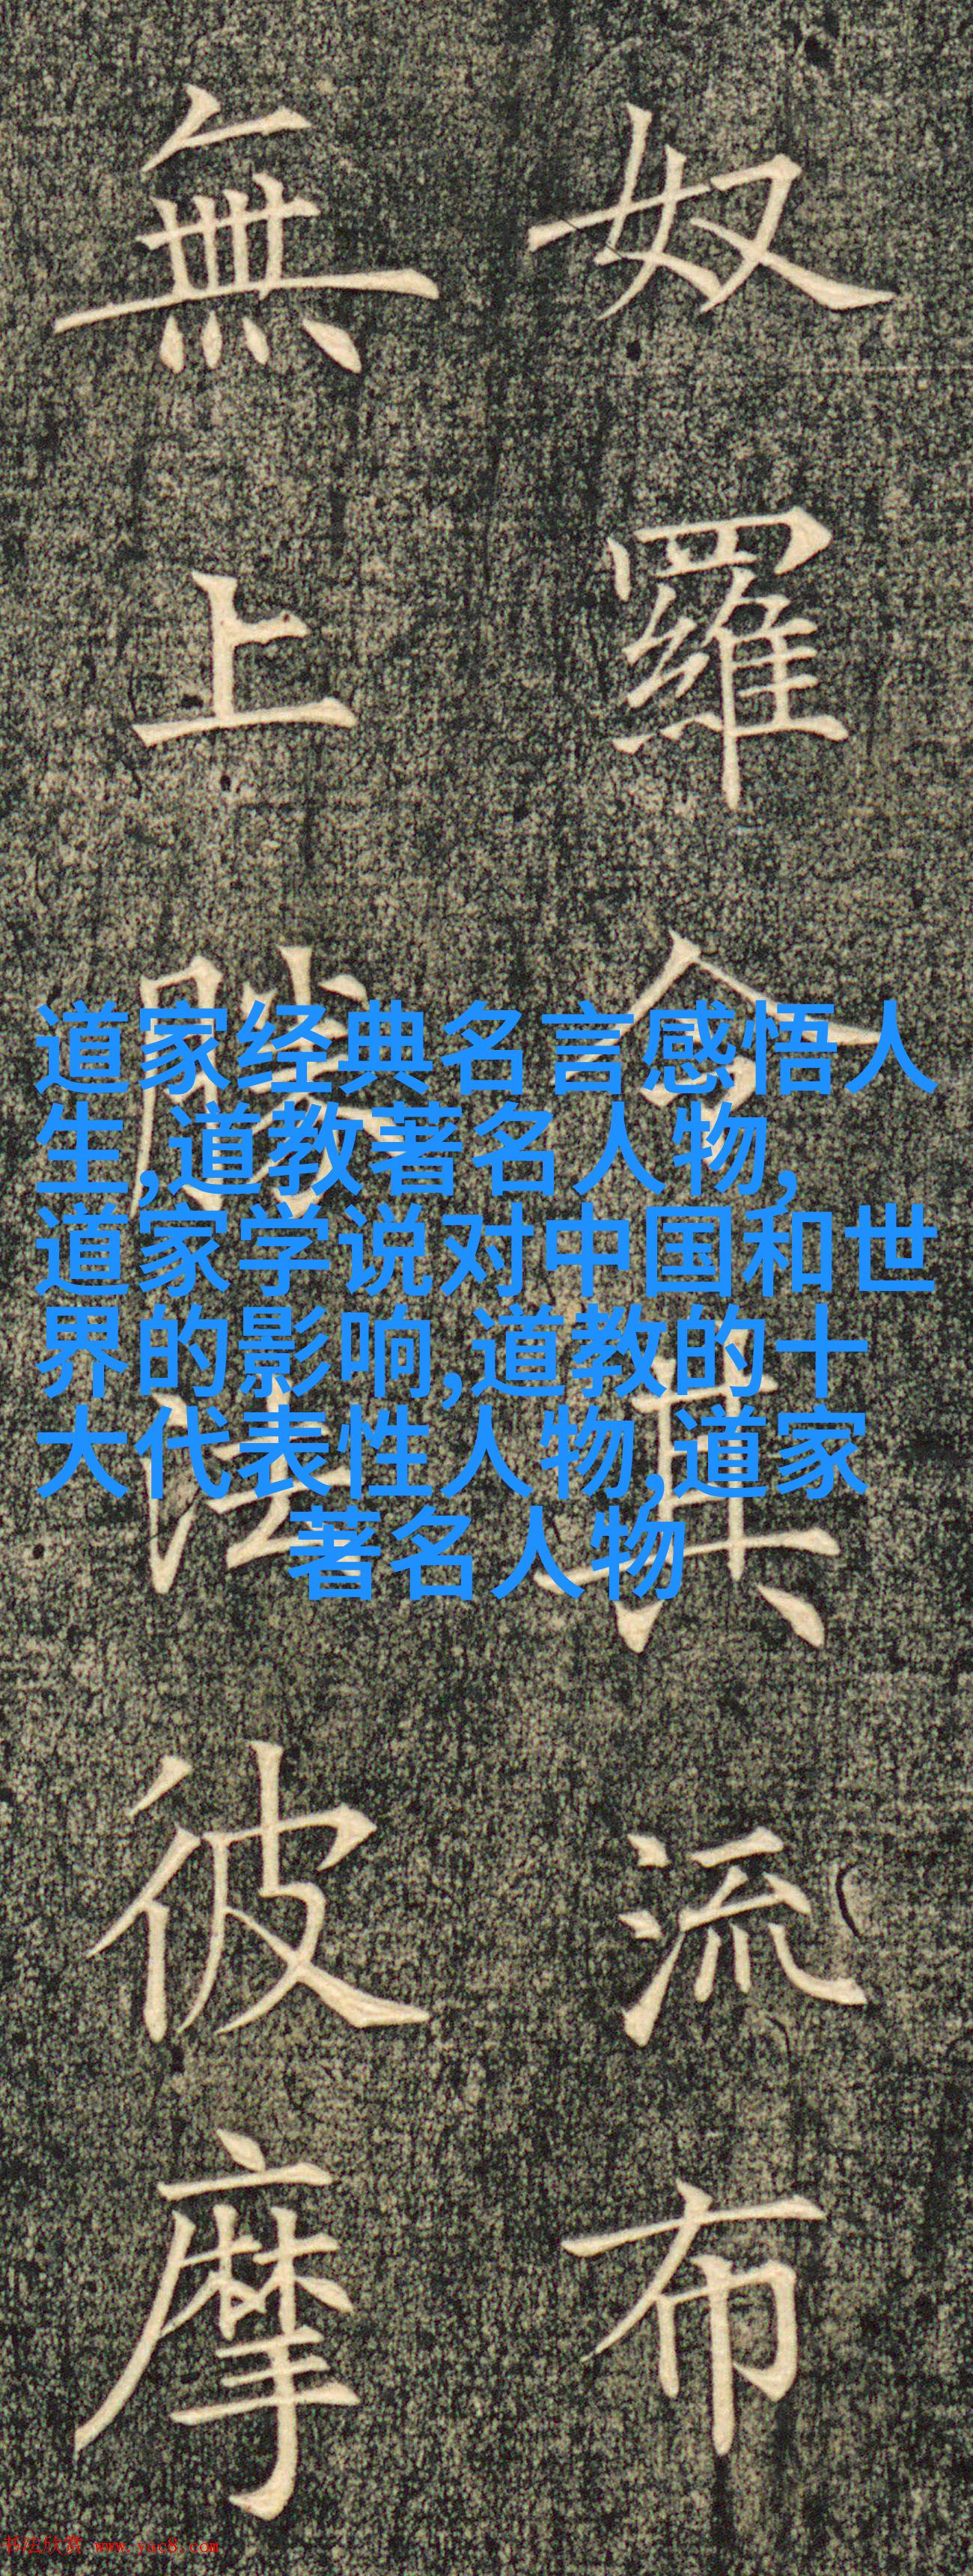 奴羅令其流布
無上勝法彼摩
道家经典名言感悟人
生,道教著名人物,
道家学说对中国和世
界的影响,道教的十
大代表性人物,道家
著名人物
书法欣赏 www.yac8.com